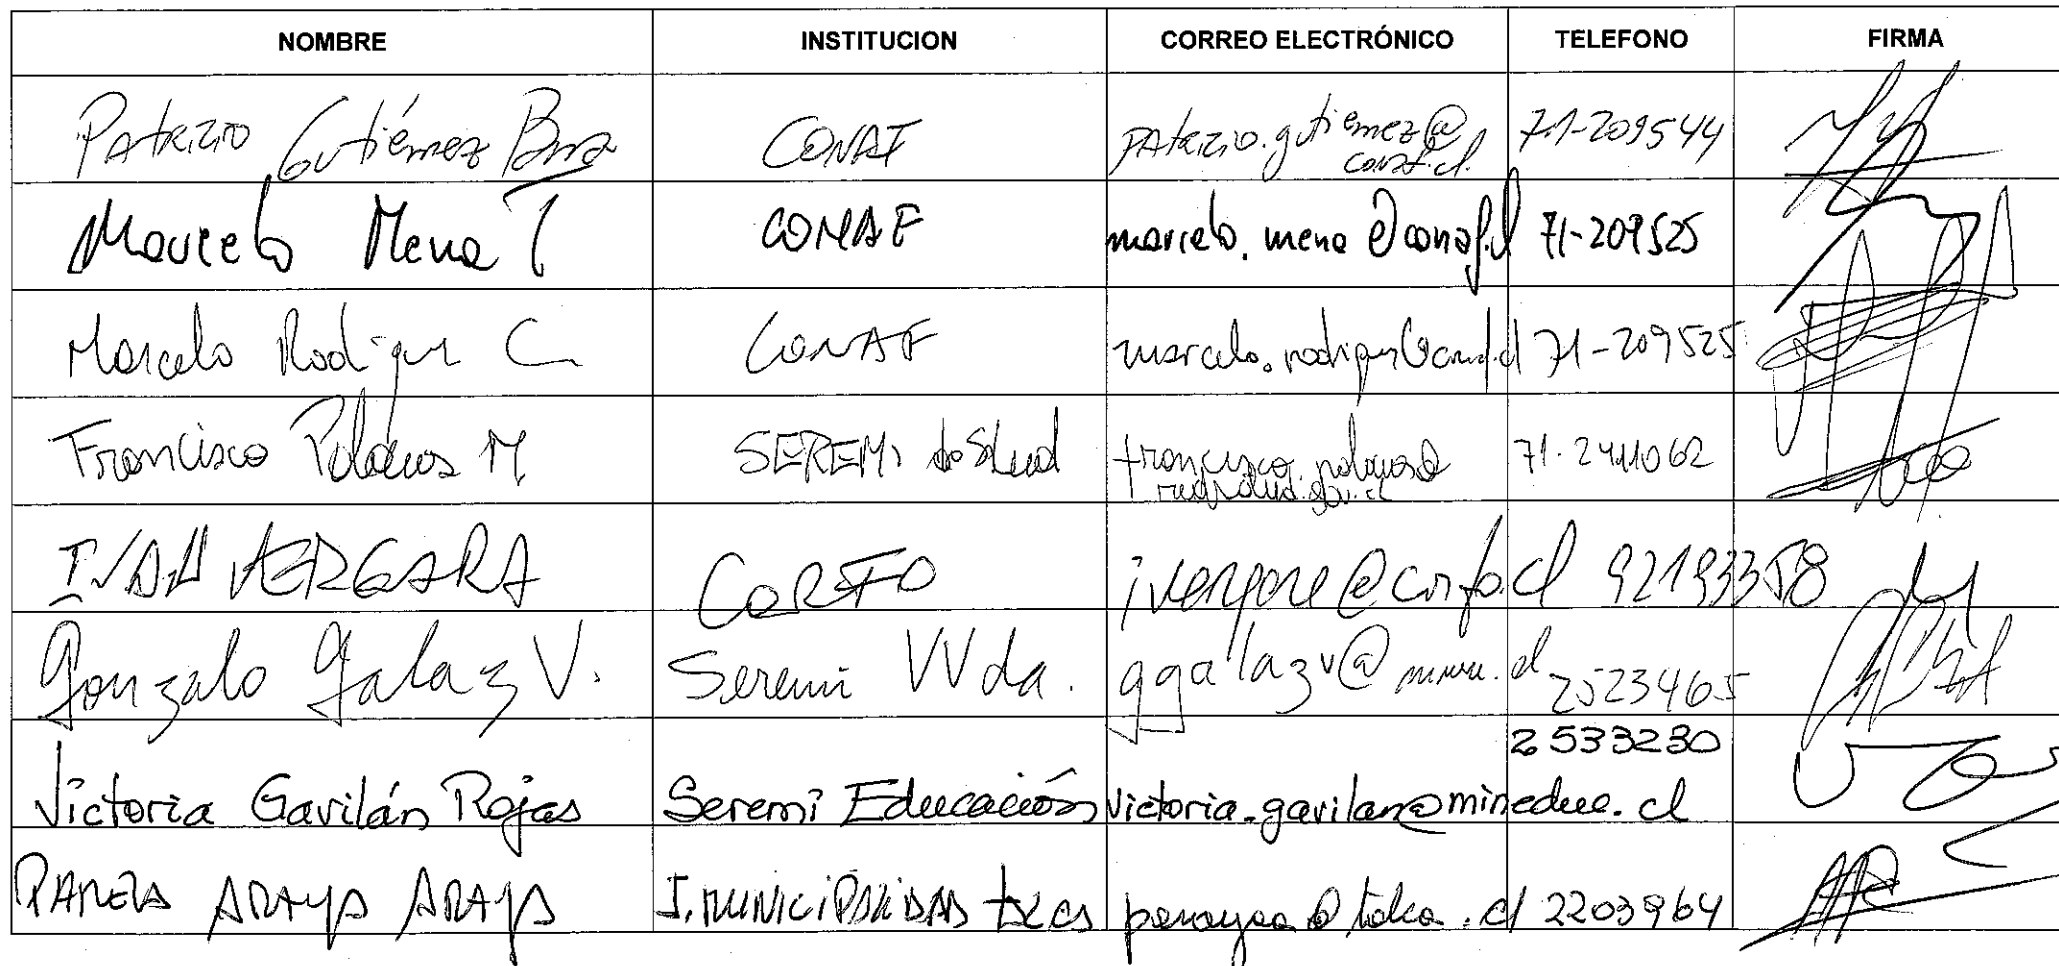 NOMBRE INSTITUCION CORREO ELECTRÓNICO TELEFONO FIRMA
Patricio Gutiérrez CONAF patricio.gutierrez@ 71-209544
conaf.cl
Marcelo Mena T CONAF marcelo.mena@conaf.cl 71-209525
Marcelo Rodriguez C CONAF marcelo.rodriguez@conaf.cl 71-209525
Francisco M SEREMI de Salud 71-2411062
IVAN VERGARA CORFO ivergara@corfo.cl 92193358
Gonzalo Galaz V. Seremi VVda. ggalazv@ .cl 2523465
2533230
Victoria Gavilán Rojas Seremi Educación victoria.gavilan@mineduc.cl
PAMELA ARAYA ARAYA I. MUNICIPALIDAD TALCA @talca.cl 2203964